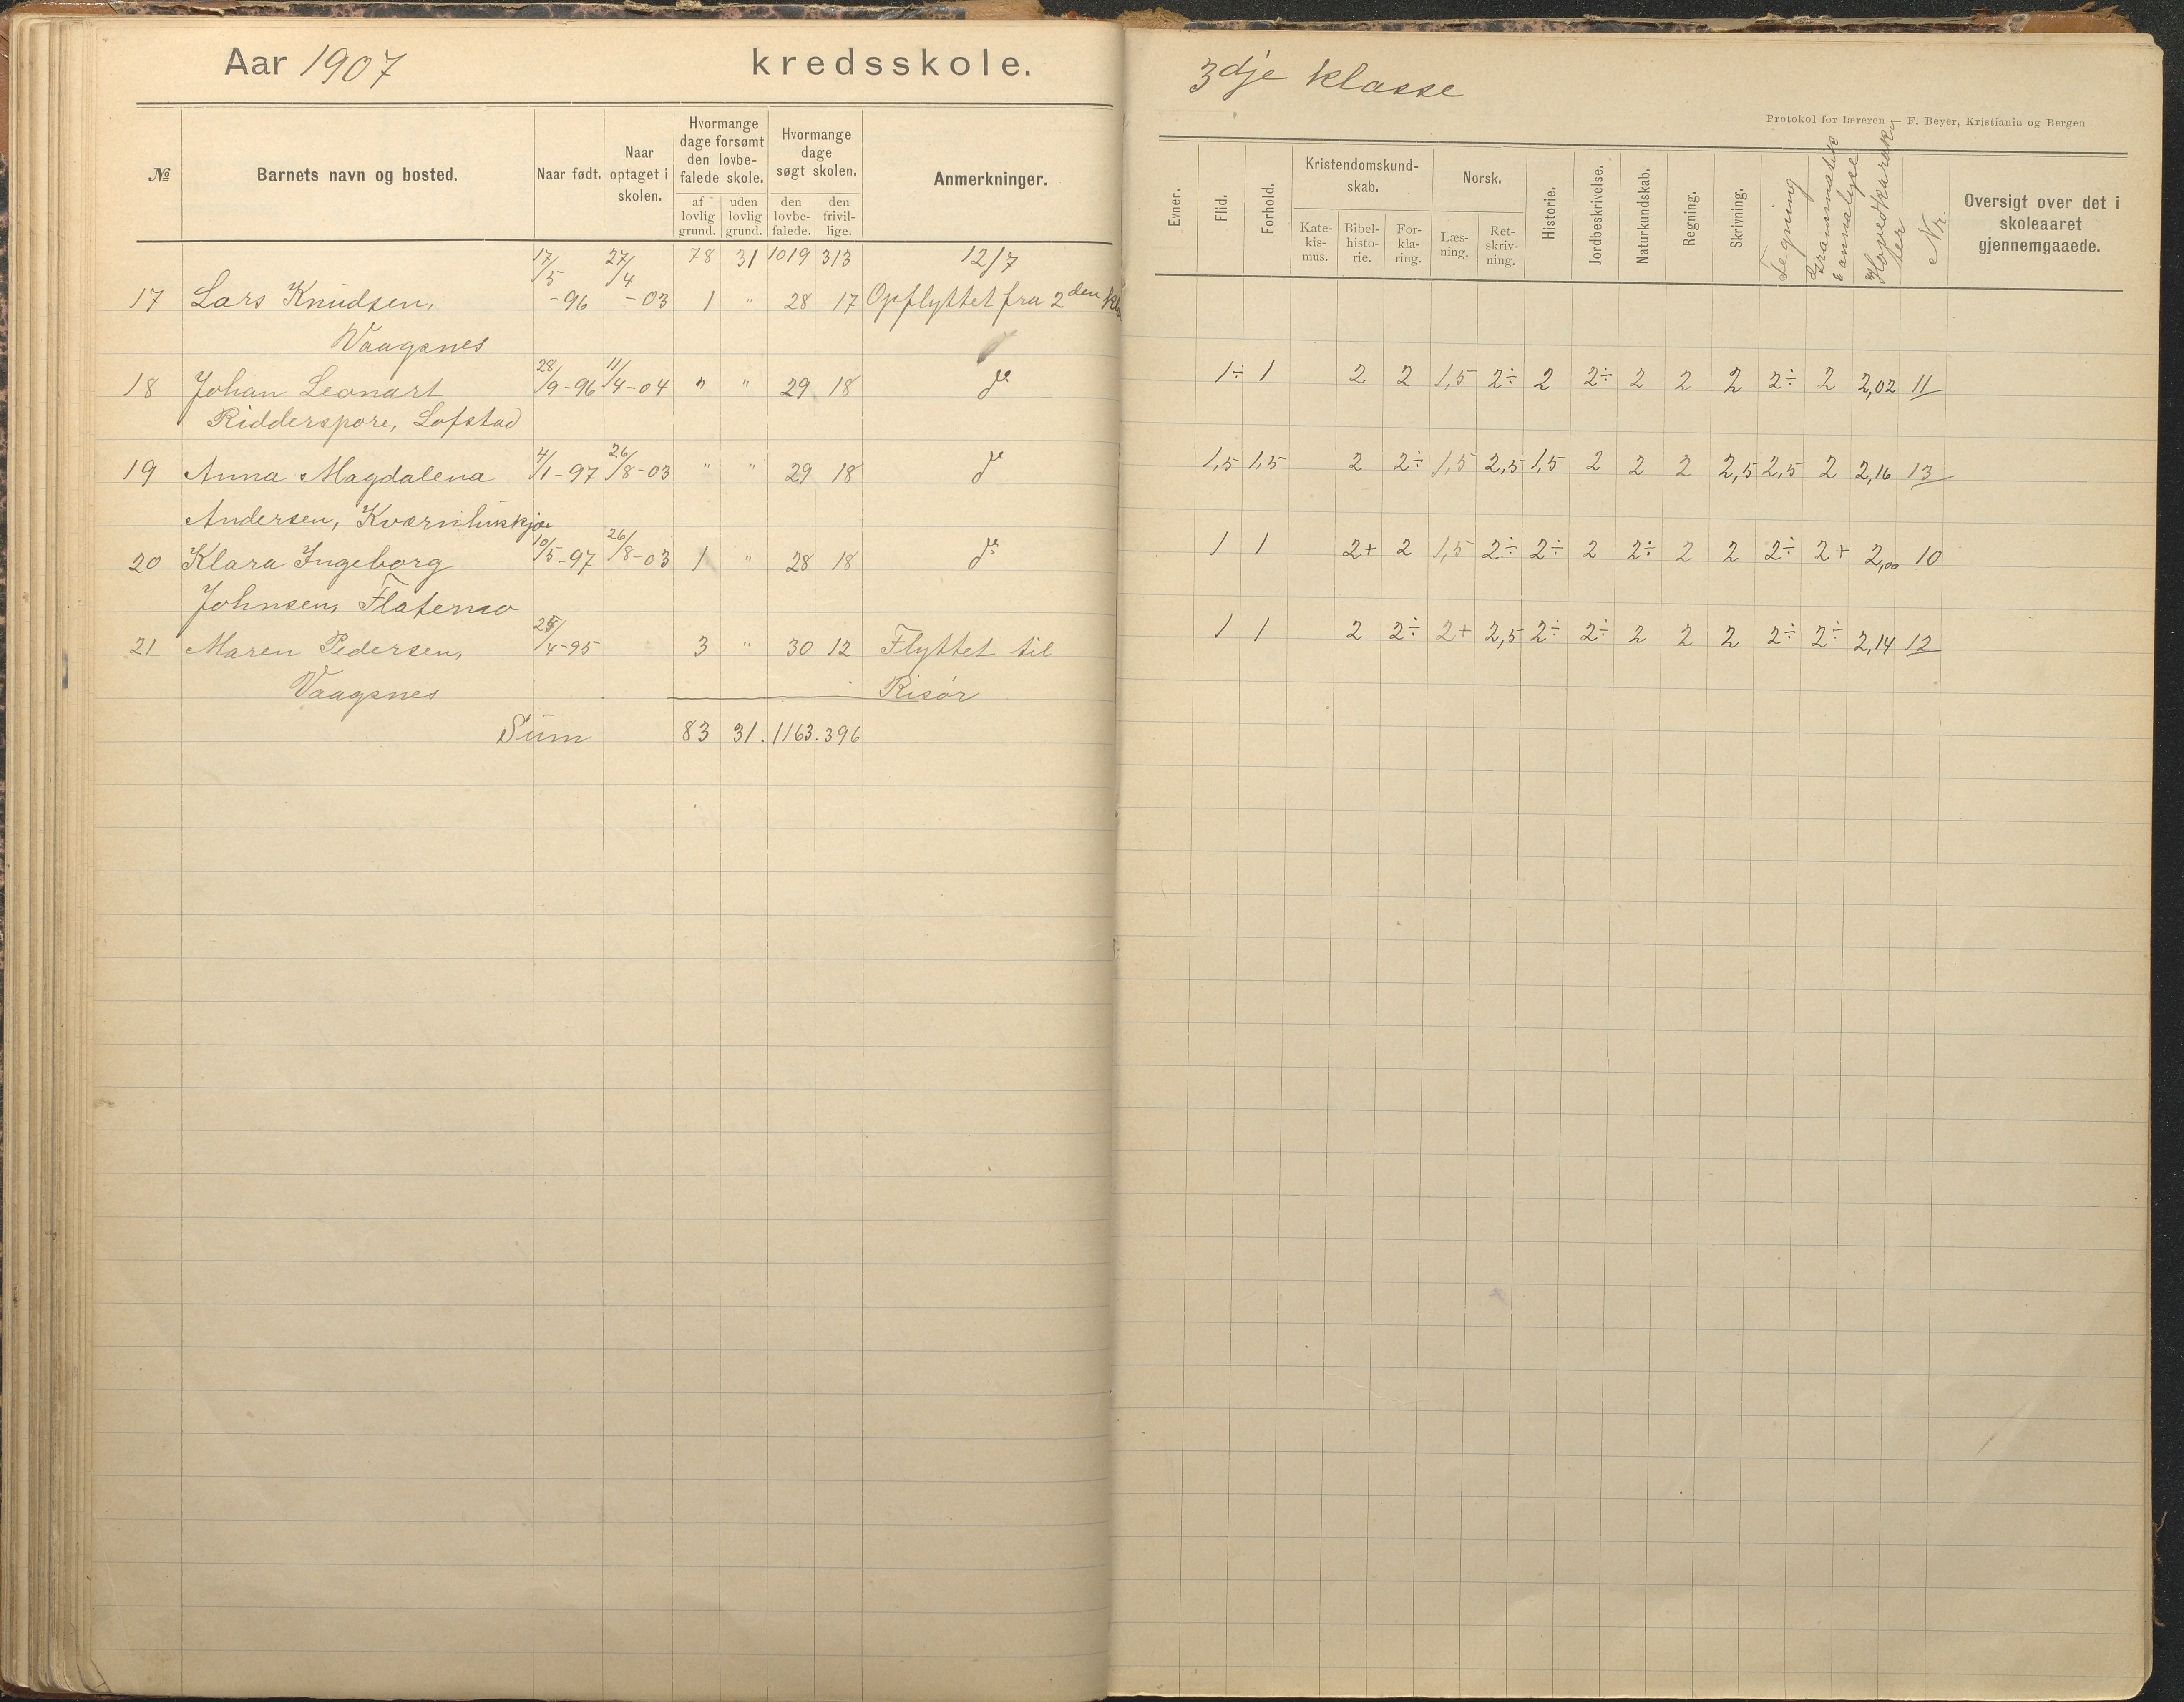 Aar 1907 kredsskole.
№ Barnets navn og bosted. Naar født. Naar optaget i skolen. Hvormange dage forsømt den lovbefalede skole. af lovlig grund. uden lovlig grund. Hvormange dage søgt skolen. den lovbefalede. den frivillige. Anmerkninger.
17/5 27/4 78 31 1019 313 12/7
17 Lars Knudsen, -96 -03 1 " 28 17 Opflyttet fra 2den kl
Vaagsnes
18 Johan Leonart 28/9-96 11/4-04 " " 29 18 do
Ridderspore, Lofstad
19 Anna Magdalena 4/1-97 26/8-03 " " 29 18 do
Andersen, Kværnhuskjær
20 Klara Ingeborg 10/5-97 26/8-03 1 " 28 18 do
Johnsen, Flatemo
21 Maren Pedersen, /4-95 3 " 30 12 Flyttet til
Vaagsnes Risör
Sum 83 31. 1163. 396
3dje klasse
Protokol for læreren — F. Beyer, Kristiania og Bergen
Evner. Flid. Forhold. Kristendomskundskab. Katekismus. Bibelhistorie. Forklaring. Norsk. Læsning. Retskrivning. Historie. Jordbeskrivelse. Naturkundskab. Regning. Skrivning. Tegning Grammatik & annalyse Hovedkarakter Nr. Oversigt over det i skoleaaret gjennemgaaede.
1÷ 1 2 2 1,5 2÷ 2 2÷ 2 2 2 2÷ 2 2,02 11
1,5 1,5 2 2÷ 1,5 2,5 1,5 2 2 2 2,5 2,5 2 2,16 13
1 1 2+ 2 1,5 2÷ 2÷ 2 2÷ 2 2 2÷ 2+ 2,00 10
1 1 2 2÷ 2+ 2,5 2÷ 2÷ 2 2 2 2÷ 2÷ 2,14 12